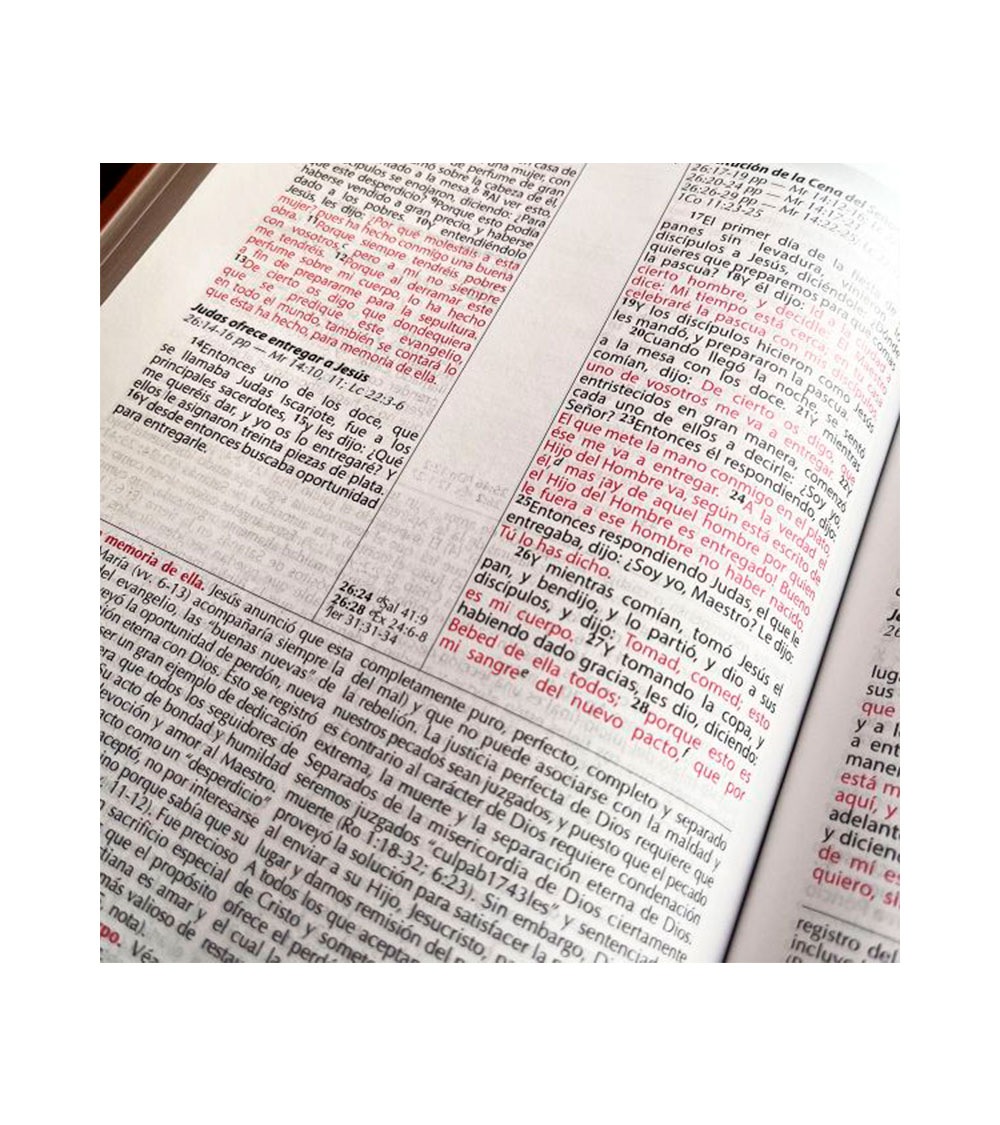 una mujer, con
de perfume de gran
sobre la cabeza de él,
a la mesa. b 8Al ver esto,
se enojaron, diciendo: ¿Para
que este desperdicio? 9Porque esto podía
haberse vendido a gran precio, y haberse
dado a los pobres. 10Y entendiéndolo
Jesús, les dijo: ¿Por qué molestáis a esta
mujer? pues ha hecho conmigo una buena
obra. 11Porque siempre tendréis pobres
con vosotros, c pero a mí no siempre
me tendréis. 12Porque al derramar este
perfume sobre mi cuerpo, lo ha hecho
a fin de prepararme para la sepultura.
13De cierto os digo que dondequiera
que se predique este evangelio,
en todo el mundo, también se contará lo
que ésta ha hecho, para memoria de ella.
Judas ofrece entregar a Jesús
26:14-16 pp — Mr 14:10, 11; Lc 22:3-6
14Entonces uno de los doce, que
se llamaba Judas Iscariote, fue a los
principales sacerdotes, 15y les dijo: ¿Qué
me queréis dar, y yo os lo entregaré? Y
ellos le asignaron treinta piezas de plata.
16Y desde entonces buscaba oportunidad
para entregarle.
26:24 d Sal 41:9
26:28 e Ex 24:6-8
f Jer 31:31-34
de la Cena del Señor
26:17-19 pp — Mr 14:12-16;
26:20-24 pp — Mr 14:17-21
26:26-29 pp — Mr 14:22-25; Lc
1Co 11:23-25
17El primer día de la fiesta de
panes sin levadura, vinieron los
discípulos a Jesús, diciéndole: ¿Dónde
quieres que preparemos para que comas
la pascua? 18Y él dijo: Id a la ciudad a
cierto hombre, y decidle: El Maestro
dice: Mi tiempo está cerca; en tu casa
celebraré la pascua con mis discípulos.
19Y los discípulos hicieron como Jesús
les mandó, y prepararon la pascua.
20Cuando llegó la noche, se sentó
a la mesa con los doce. 21Y mientras
comían, dijo: De cierto os digo, que
uno de vosotros me va a entregar. 22Y
entristecidos en gran manera, comenzó
cada uno de ellos a decirle: ¿Soy yo,
Señor? 23Entonces él respondiendo, dijo:
El que mete la mano conmigo en el plato,
ése me va a entregar. 24A la verdad el
Hijo del Hombre va, según está escrito de
él, d mas ¡ay de aquel hombre por quien
el Hijo del Hombre es entregado! Bueno
le fuera a ese hombre no haber nacido.
25Entonces respondiendo Judas, el que le
entregaba, dijo: ¿Soy yo, Maestro? Le dijo:
Tú lo has dicho.
26Y mientras comían, tomó Jesús el
pan, y bendijo, y lo partió, y dio a sus
discípulos, y dijo: Tomad, comed; esto
es mi cuerpo. 27Y tomando la copa, y
habiendo dado gracias, les dio, diciendo:
Bebed de ella todos; 28porque esto es
mi sangre e del nuevo pacto, f que por
memoria de ella. Jesús anunció que esta
María (vv. 6-13) acompañaría siempre la
del evangelio, las "buenas nuevas" de
la oportunidad de perdón, nueva
eterna con Dios. Esto se registró
ser un gran ejemplo de dedicación
que todos los seguidores de
su acto de bondad y humildad
devoción y amor al Maestro.
acto como un "desperdicio"
aceptó, no por interesarse
sino porque sabía que su
11-12). Fue precioso
sacrificio especial
que el propósito
es amar y
más valioso de
nota).
completamente puro, perfecto, completo y separado
del mal) y que no puede asociarse con la maldad y
la rebelión. La justicia perfecta de Dios requiere que
nuestros pecados sean juzgados, y puesto que el pecado
es contrario al carácter de Dios requiere condenación
extrema, la muerte y la separación eterna de Dios.
Separados de la misericordia de Dios ciertamente
seremos juzgados "culpab1743les" y sentenciad
muerte (Ro 1:18-32; 6:23). Sin embargo, Di
proveyó la solución para satisfacer la
al enviar a su Hijo, Jesucristo, pa
lugar y darnos remisión del
A todos los que aceptan
de Cristo y somete
ofrece el perdó
el cual la
de restau
Véa
26
luga
sus
que
y a l
a ent
maner
está m
aquí, y
adelant
y dicien
de mí es
quiero, si
registro del
incluye